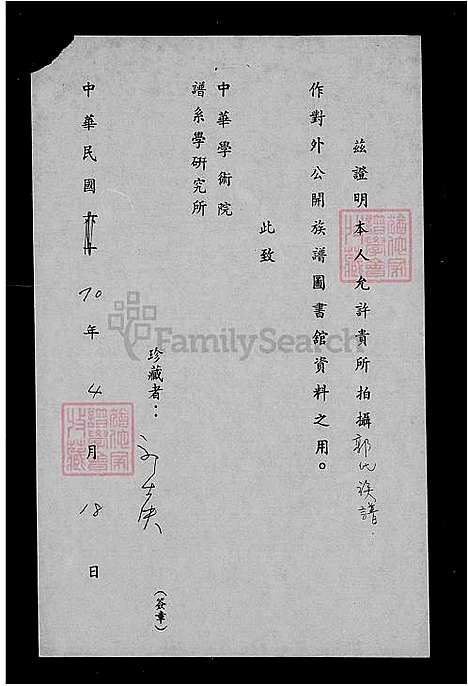 茲證明本人允許貴所拍攝郭氏族譜
作對外公開族譜圖書館資料之用。
此致
中華學術院
譜系學研究所
珍藏者：
(簽章)
中華民國70年4月18日
FamilySearch